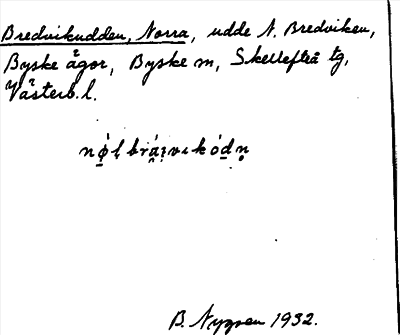 Bredvikudden, Norra, udde N. Bredviken,
Byske ägor, Byske sn, Skellefteå tg,
Västerb. l.
B. Nygren 1932.